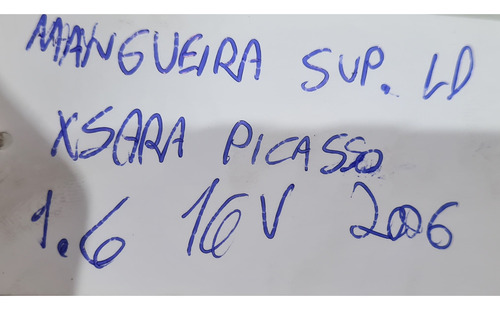 MANGUEIRA SUP. LD
XSARA PICASSO
1.6 16V 2006